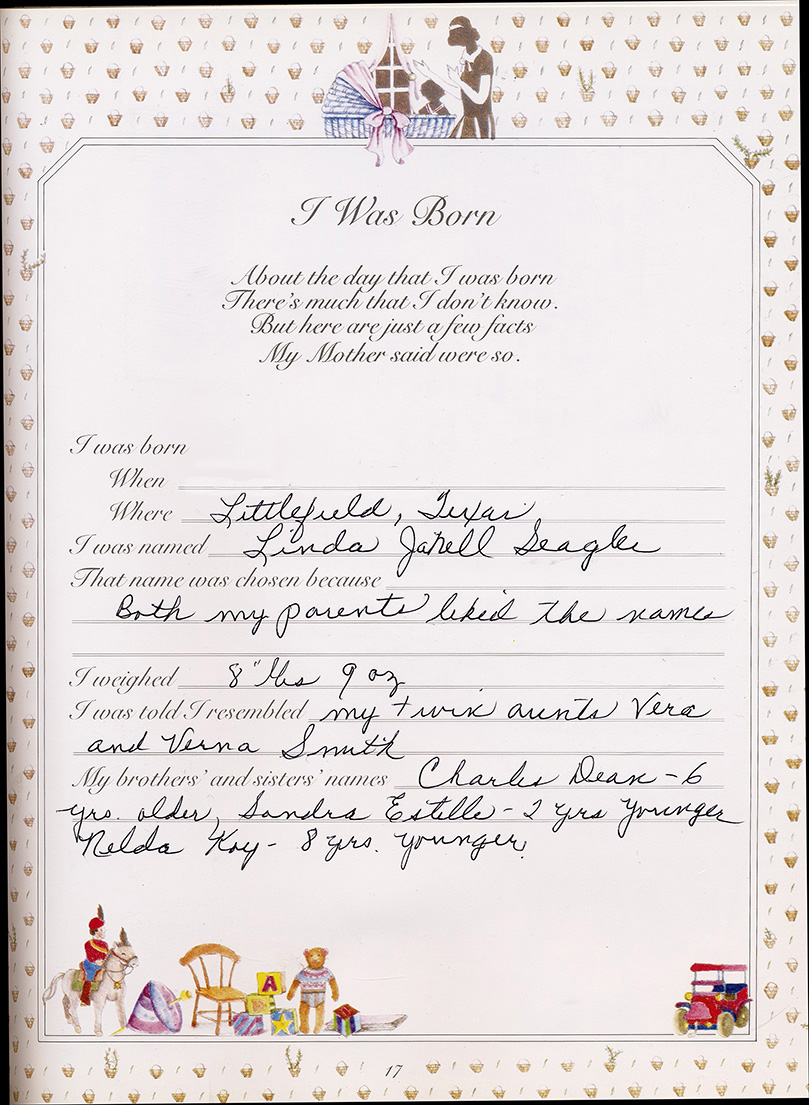 I Was Born
About the day that I was born
There's much that I don't know.
But here are just a few facts
My Mother said were so.
I was born
When
Where Littlefield, Texas
I was named Linda Janell Seagler
That name was chosen because
Both my parents liked the names
I weighed 8 lbs 9 oz
I was told I resembled my twin aunts Vera
and Verna Smith
My brothers' and sisters' names Charles Dean - 6
yrs. older, Sandra Estelle - 2 yrs younger
Nelda Kay - 8 yrs. younger.
A
17